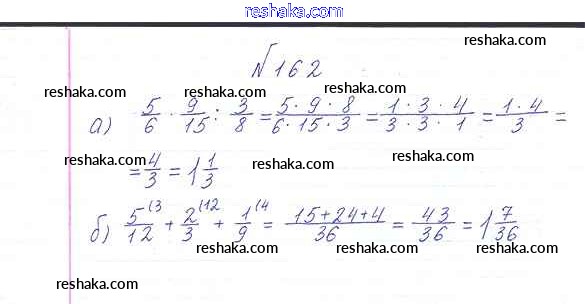 reshaka.com
№162
reshaka.com
reshaka.com reshaka.com
reshaka.com
а) 5/6 · 9/15 : 3/8 = 5·9·8/6·15·3 = 1·3·4/3·3·1 = 1·4/3 =
reshaka.com reshaka.com reshaka.com
= 4/3 = 1 1/3
б) 5(3/12 + 2(12/3 + 1(4/9 = 15+24+4/36 = 43/36 = 1 7/36
reshaka.com reshaka.com reshaka.com
reshaka.com